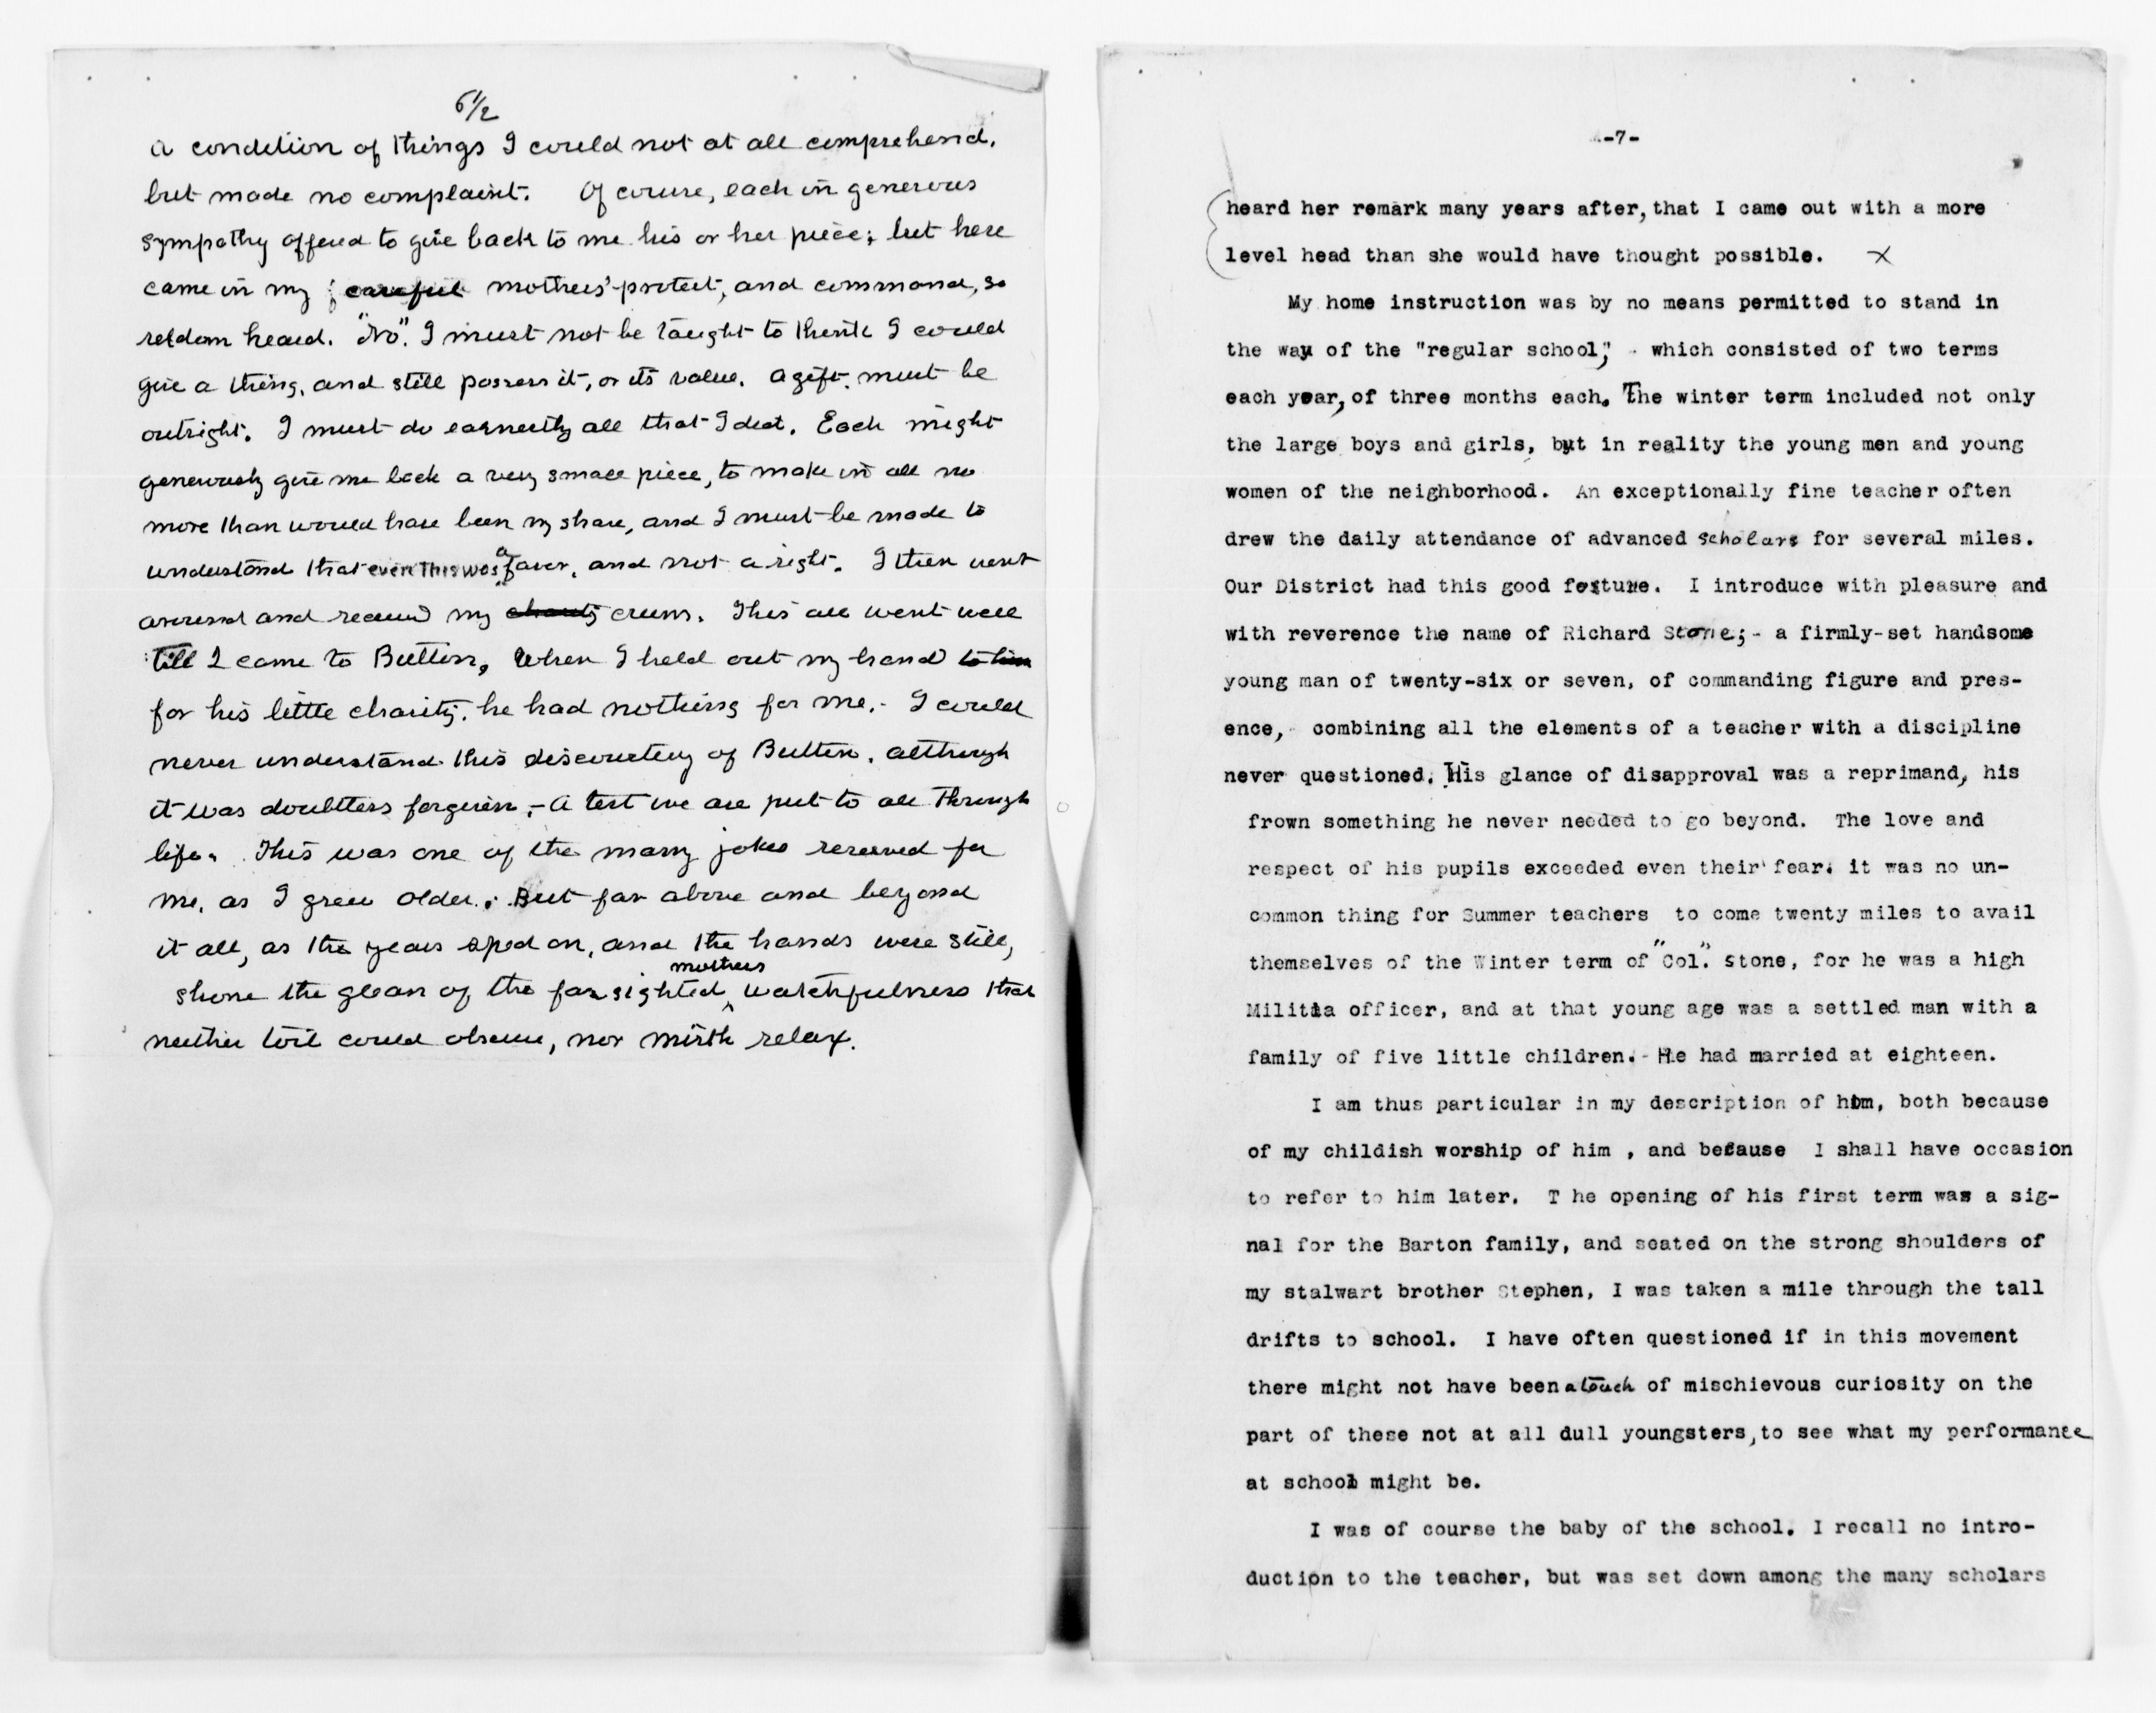 6 1/2
a condition of things I could not at all comprehend,
but made no complaint. Of course, each in generous
sympathy offered to give back to me his or her piece; but here
came in my careful mothers' protest, and command, so
seldom heard. "No". I must not be taught to think I could
give a thing, and still possess it, or its value. A gift must be
outright. I must do earnestly all that I did. Each might
generously give me back a very small piece, to make in all no
more than would have been my share, and I must be made to
understand that even this was a favor, and not a right. I then went
around and received my charity crums. This all went well
till I came to Button, When I held out my hand to him
for his little charity, he had nothing for me.- I could
never understand this discourtesy of Button, although
it was doubtless forgiven,- a test we are put to all through
life. This was one of the many jokes reserved for
me, as I grew older. But far above and beyond
it all, as the years sped on, and the hands were still,
shone the gleam of the far sighted mothers watchfulness that
neither toil could obscure, nor mirth relax.
-7-
heard her remark many years after, that I came out with a more
level head than she would have thought possible. X
My home instruction was by no means permitted to stand in
the way of the "regular school," - which consisted of two terms
each year, of three months each. The winter term included not only
the large boys and girls, but in reality the young men and young
women of the neighborhood. An exceptionally fine teacher often
drew the daily attendance of advanced scholars for several miles.
Our District had this good fortune. I introduce with pleasure and
with reverence the name of Richard Stone;- a firmly-set handsome
young man of twenty-six or seven, of commanding figure and pres-
ence,- combining all the elements of a teacher with a discipline
never questioned. His glance of disapproval was a reprimand, his
frown something he never needed to go beyond. The love and
respect of his pupils exceeded even their fear. it was no un-
common thing for Summer teachers to come twenty miles to avail
themselves of the Winter term of "Col". Stone, for he was a high
Militia officer, and at that young age was a settled man with a
family of five little children.- He had married at eighteen.
I am thus particular in my description of him, both because
of my childish worship of him , and because I shall have occasion
to refer to him later. T he opening of his first term was a sig-
nal for the Barton family, and seated on the strong shoulders of
my stalwart brother Stephen, I was taken a mile through the tall
drifts to school. I have often questioned if in this movement
there might not have been a touch of mischievous curiosity on the
part of these not at all dull youngsters, to see what my performance
at school might be.
I was of course the baby of the school. I recall no intro-
duction to the teacher, but was set down among the many scholars